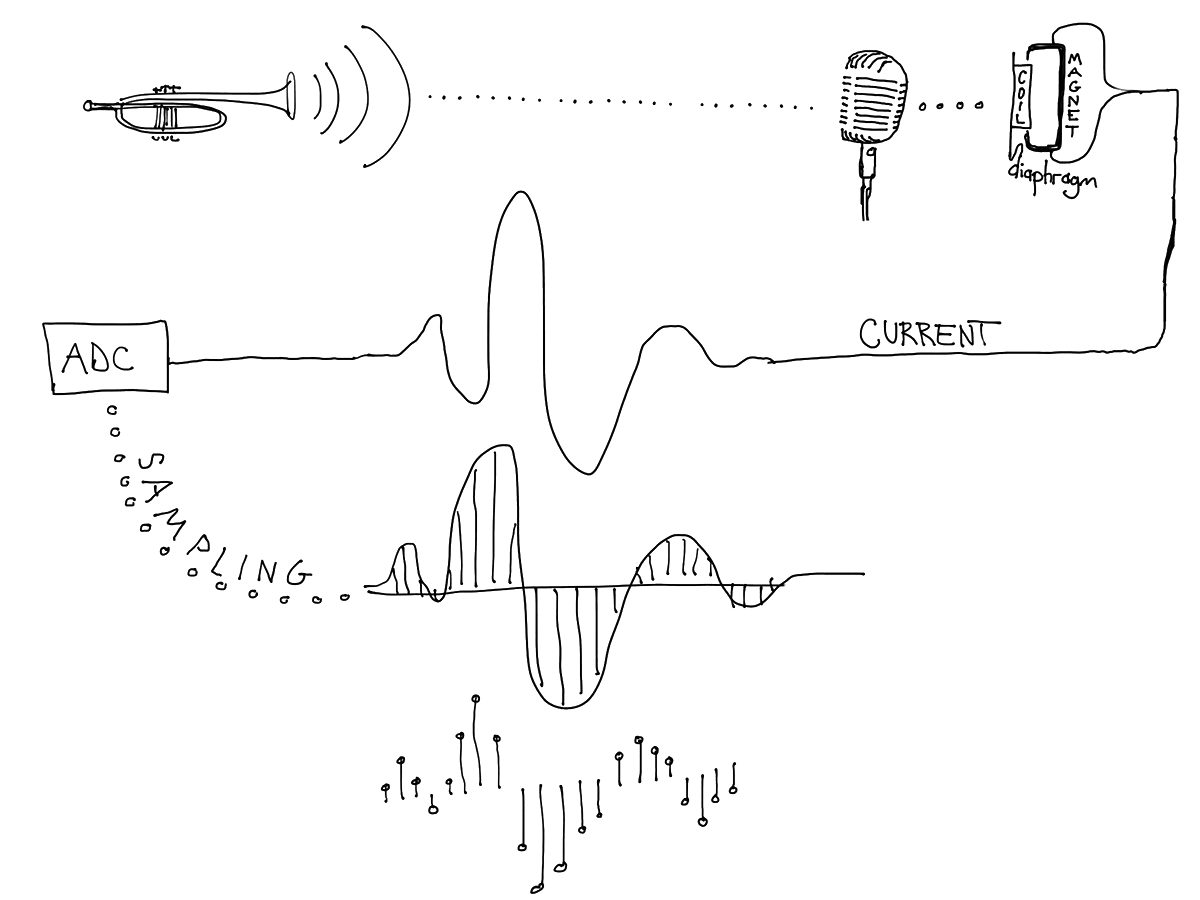 COIL
MAGNET
diaphragm
CURRENT
ADC
SAMPLING